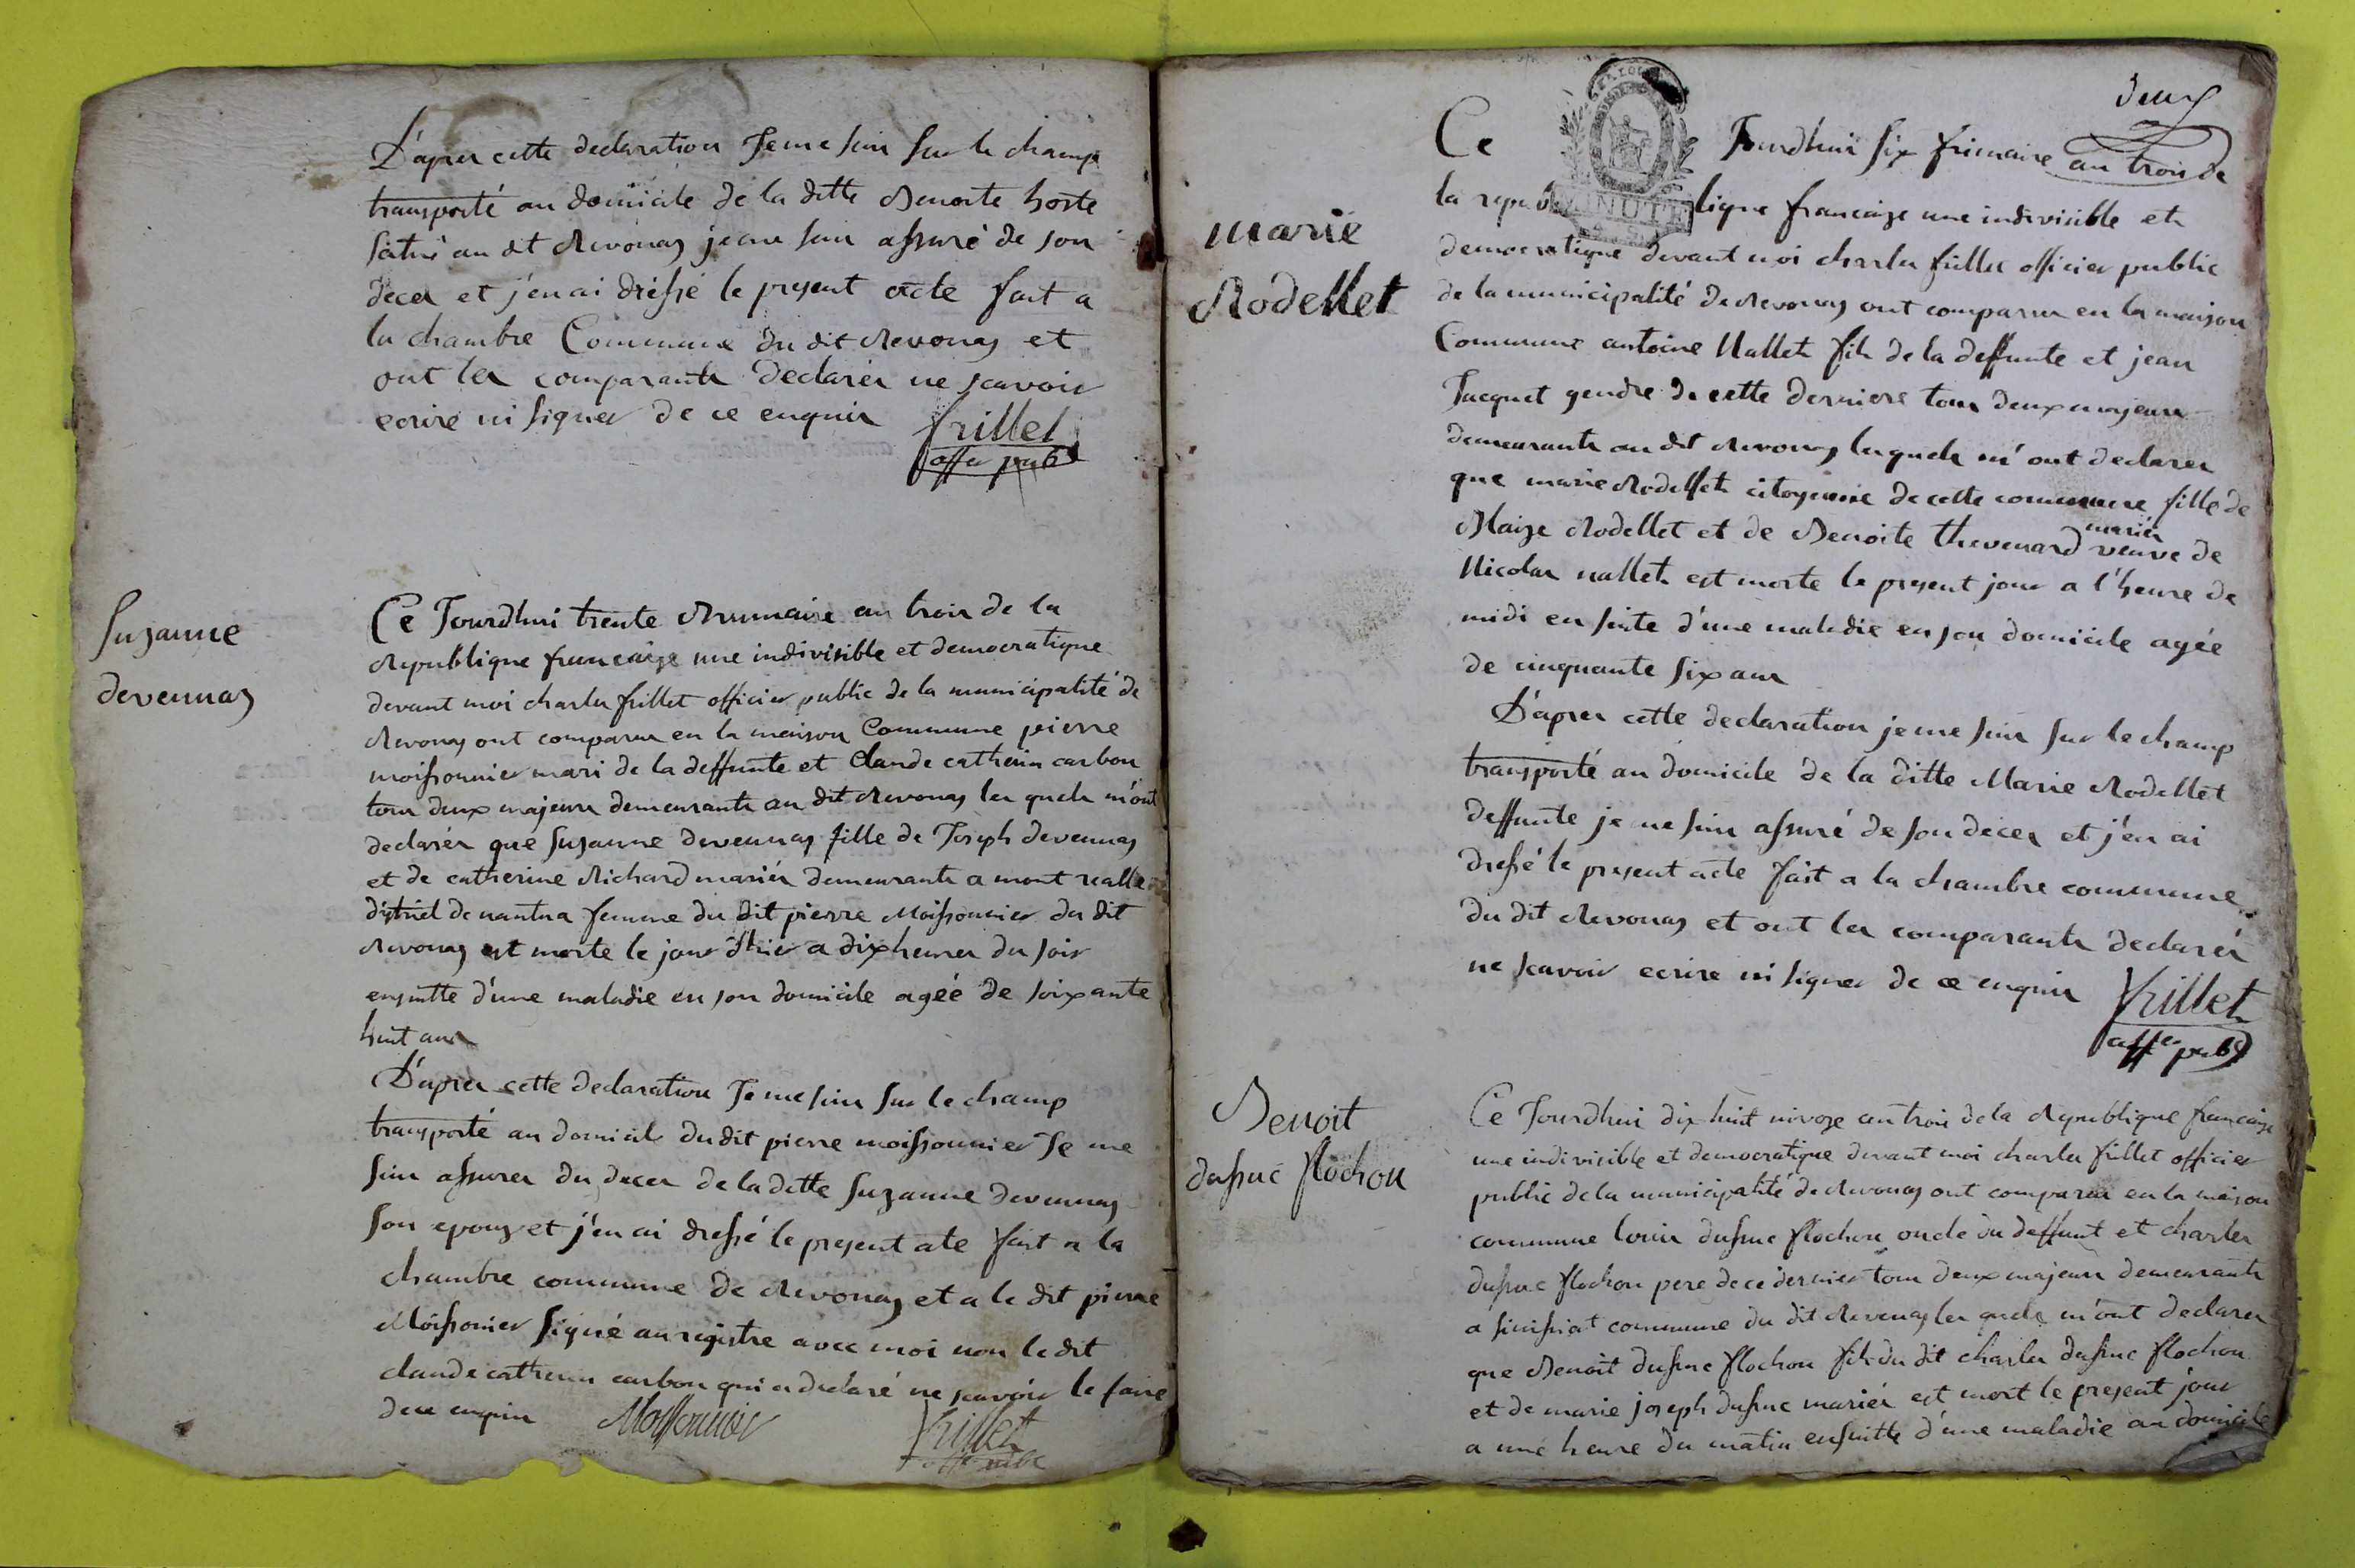 D'apres cette declaration Je me suis sur le champs
transporté au domicile de la ditte Benoite hoste
situé au dit Revonas je me suis assuré de son
deces et j'en ai dréssé le present acte fait a
la chambre Commune du dit Revonas et
ont les comparants declarés ne scavoir
ecrire ni signer de ce enquis frillet
offer pub
Suzanne
devennas
Ce Jourdhui trente Brumaire an trois de la
Republique francaize une indivisible et democratique
devant moi charles frillet officier public de la municipalité de
Revonas ont comparus en la maison Commune pierre
moissonnier mari de la deffunte et Claude catherin carbon
tous deux majeurs demeurants au dit Revonas les quels m'ont
declarés que Suzanne devennas fille de Joseph devennas
et de catherine Richard mariés demeurants a mont realle
district de nantua femme du dit pierre Moissonnier du dit
Revonas est morte le jour d'hier a dix heures du soir
ensuitte d'une maladie en son domicile agéé de soixante
huit ans
D'apres cette declaration Je me suis sur le champ
transporté au domicile du dit pierre moissonnier Je me
suis assurer du deces de la ditte Suzanne devennas
son epouze et j'en ai dressé le present ate fait a la
chambre commune de Revonas et a le dit pierre
Moissonier signé au registre avec moi non le dit
claude catherin carbon qui a declaré ne scavoir le faire
de ce enquis Moissonnier frillet
off pub
deux
marie
Rodellet
Ce Jourdhui six frimaire an trois de
la republique francaize une indivisible et
democratique devant moi charles frillet officier public
de la municipalité de Revonas ont comparus en la maison
Commune antoine Nallet fils de la deffunte et jean
Jacquet gendre de cette derniere tous deux majeurs
demeurants au dit Revonas lesquels m'ont declarés
que marie Rodellet citoyenne de cette commune fille de
Blaize Rodellet et de Benoite thevenard mariés veuve de
Nicolas nallet est morte le present jour a l'heure de
midi en suite d'une maladie en son domicile agée
de cinquante six ans
D'apres cette declaration je me suis sur le champ
transporté au domicile de la ditte Marie Rodellet
deffunte je me suis assuré de son deces et j'en ai
dressé le present acte fait a la chambre commune
du dit Revonas et ont les comparants declarés
ne scavoir ecrire ni signer de ce enquis frillet
offer pub
Benoit
dusuc flochon
Ce Jourdhui dix huit nivoze an trois de la Republique francaize
une indivisible et democratique devant moi charles frillet officier
public de la municipalité de Revonas ont comparus en la maison
commune louis dusuc flochon oncle du deffunt et charles
dusuc flochon pere de ce dernier tous deux majeurs demeurants
a simisiat commune du dit Revonas les quels m'ont declarés
que Benoit dusuc flochon fils du dit charles dusuc flochon
et de marie joseph dusuc mariés est mort le present jour
a une heure du matin ensuitte d'une maladie au domicile